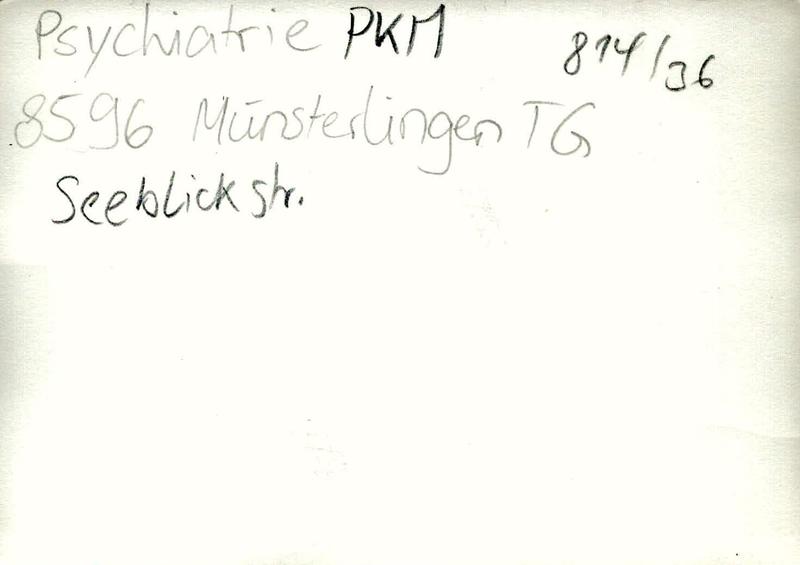 Psychiatrie PKM 814/36
8596 Münsterlingen TG
Seeblickstr.